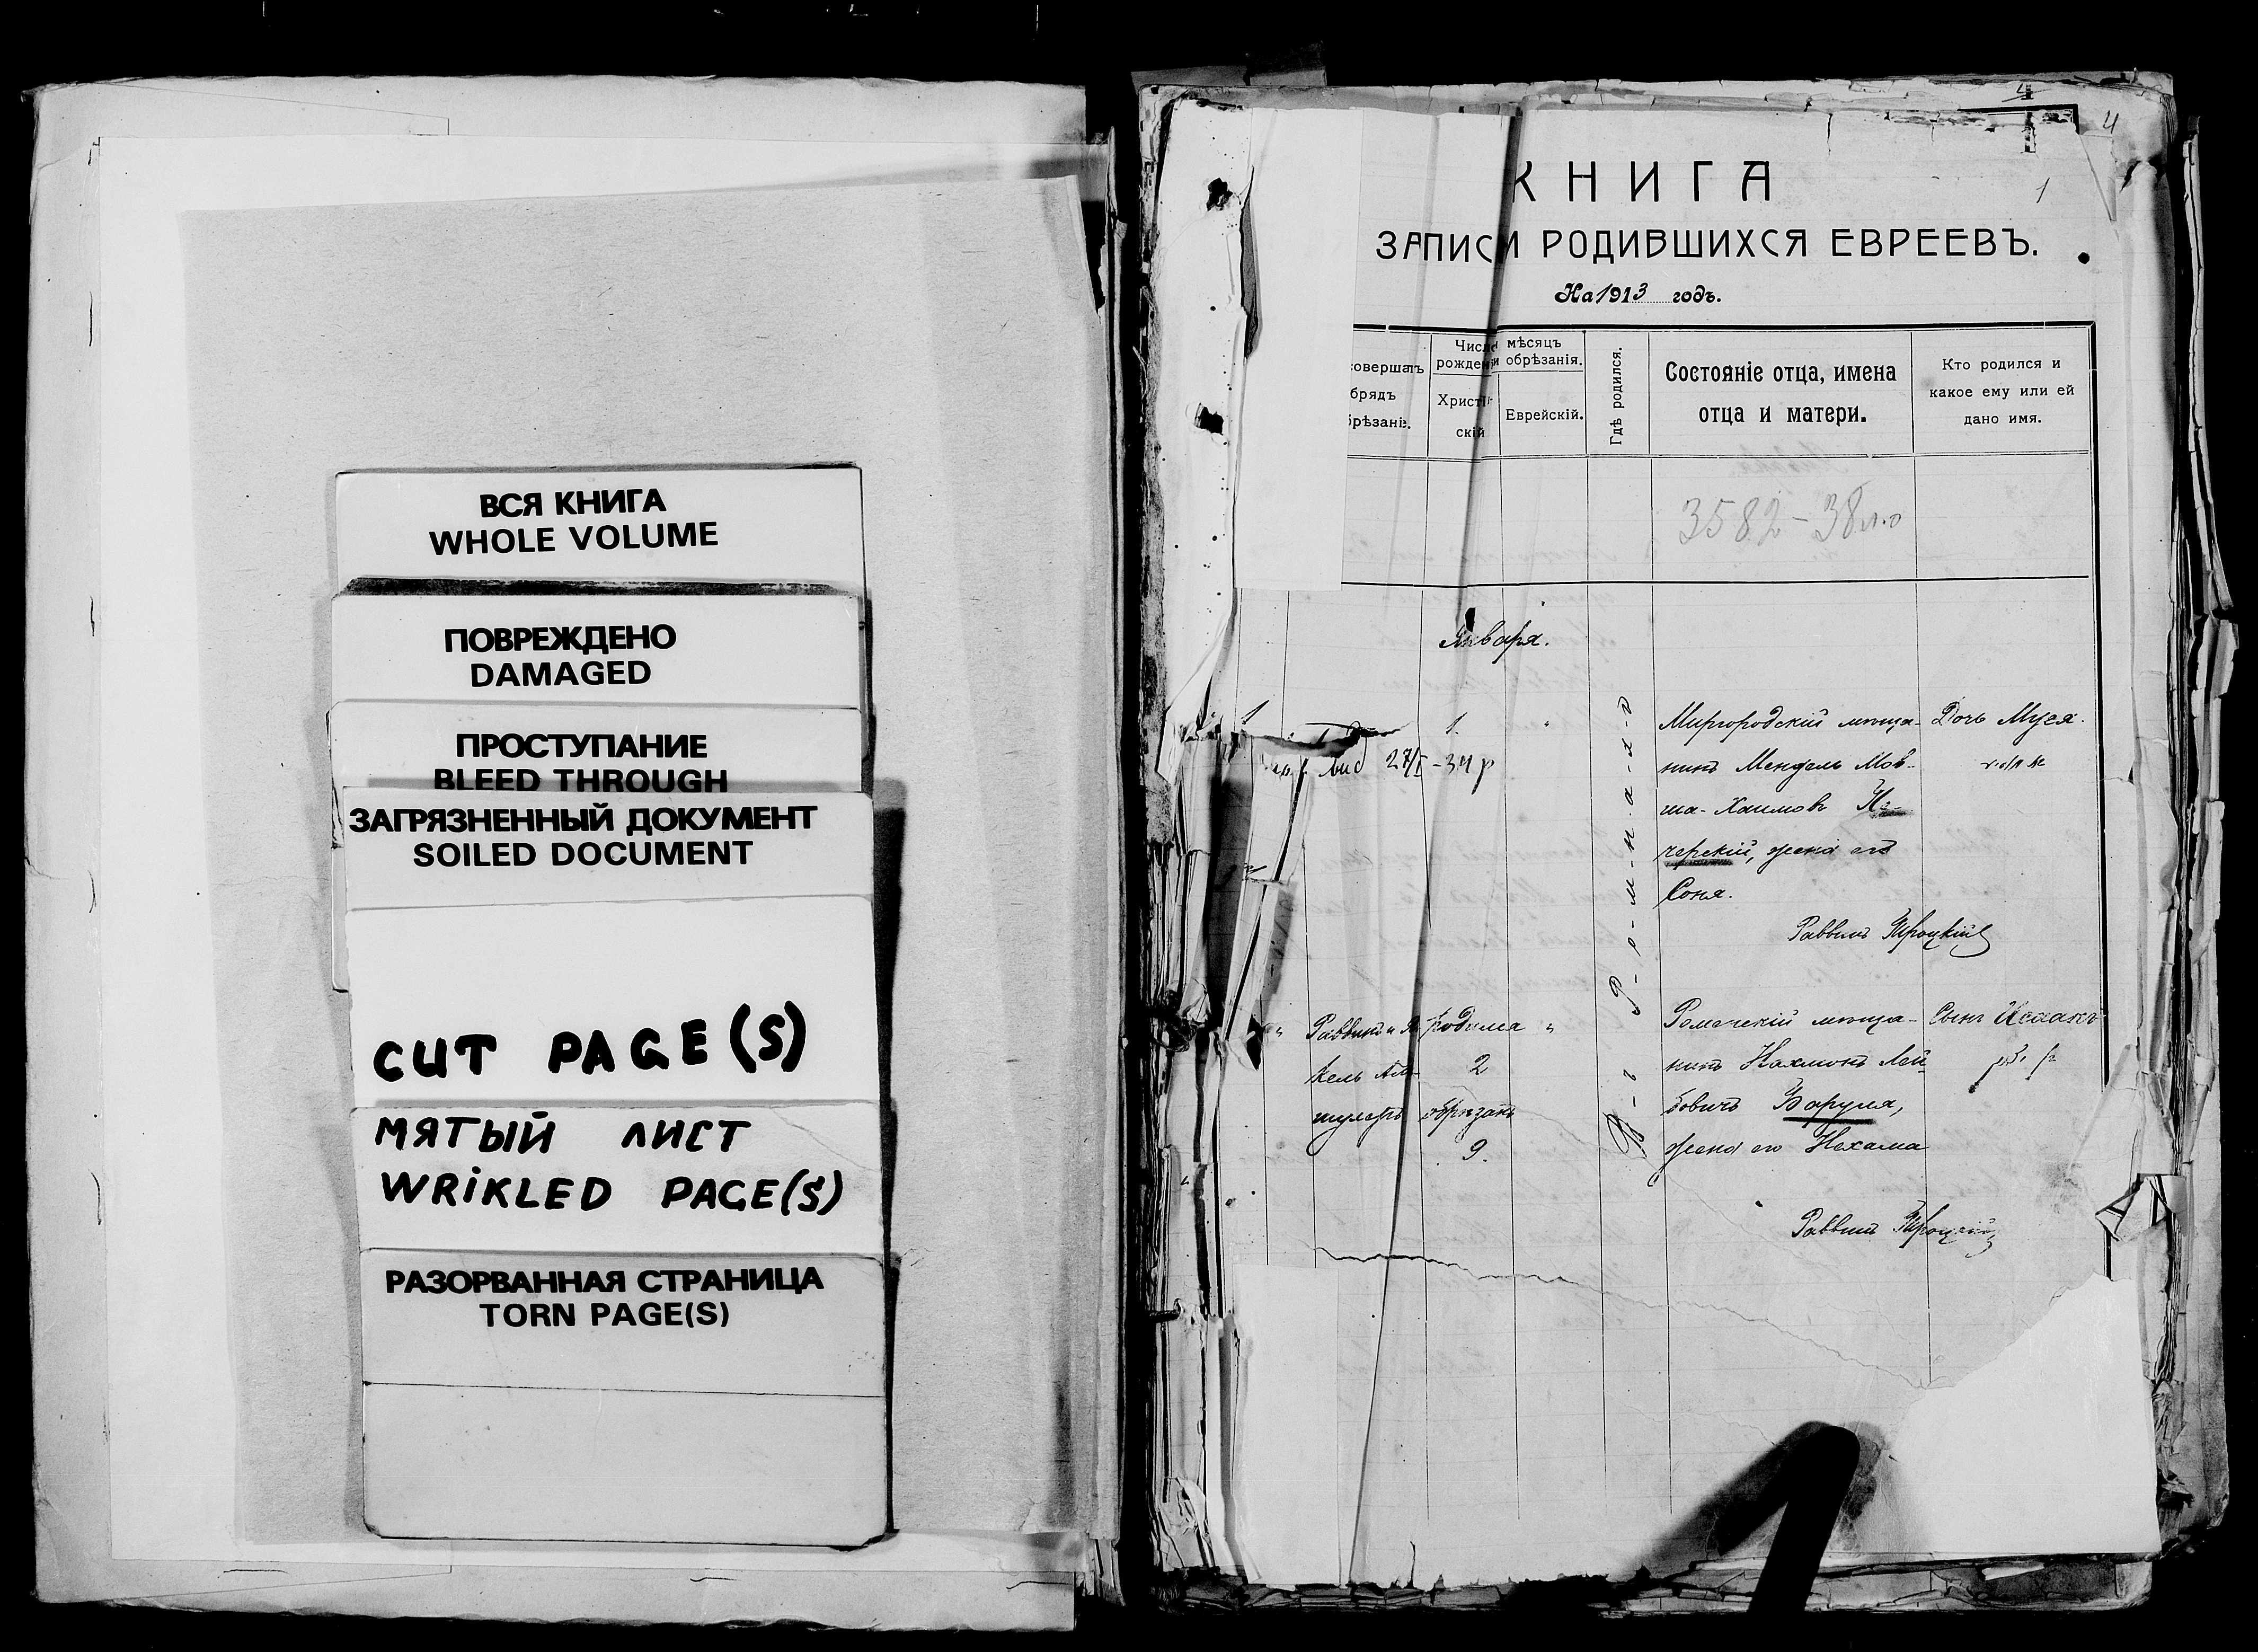 ВСЯ КНИГА
WHOLE VOLUME
ПОВРЕЖДЕНО
DAMAGED
ПРОСТУПАНИЕ
BLEED THROUGH
ЗАГРЯЗНЕННЫЙ ДОКУМЕНТ
SOILED DOCUMENT
CUT PAGE(S)
МЯТЫЙ ЛИСТ
WRiKLED PAGE(S)
РАЗОРВАННАЯ СТРАНИЦА
TORN PAGE(S)
4
4
1
КНИГА
ЗАПИСИ РОДИВШИХСЯ ЕВРЕЕВЪ.
На 1913 годъ.
совершалъ
обрядъ
обрѣзанія.
Число и мѣсяцъ
рожденія и обрѣзанія.
Христіан-
скій
Еврейскій.
Гдѣ родился.
Состояніе отца, имена
отца и матери.
Кто родился и
какое ему или ей
дано имя.
3582-38
Января.
1
1.
Миргородскій мѣща-
Дочь Муся.
27/I - 34 р
нинъ Мендель Мов-
ша-Хаимовъ
черскій, жена его
Соня.
Раввинъ Троцкій
Раввинъ и
Родился
Роменскій мѣща-
Сынъ Исаакъ
2
нинъ Нахмонъ Лей-
обрѣзанъ
бовичъ Баруля,
9.
жена его Нехама
Раввинъ Троцкій